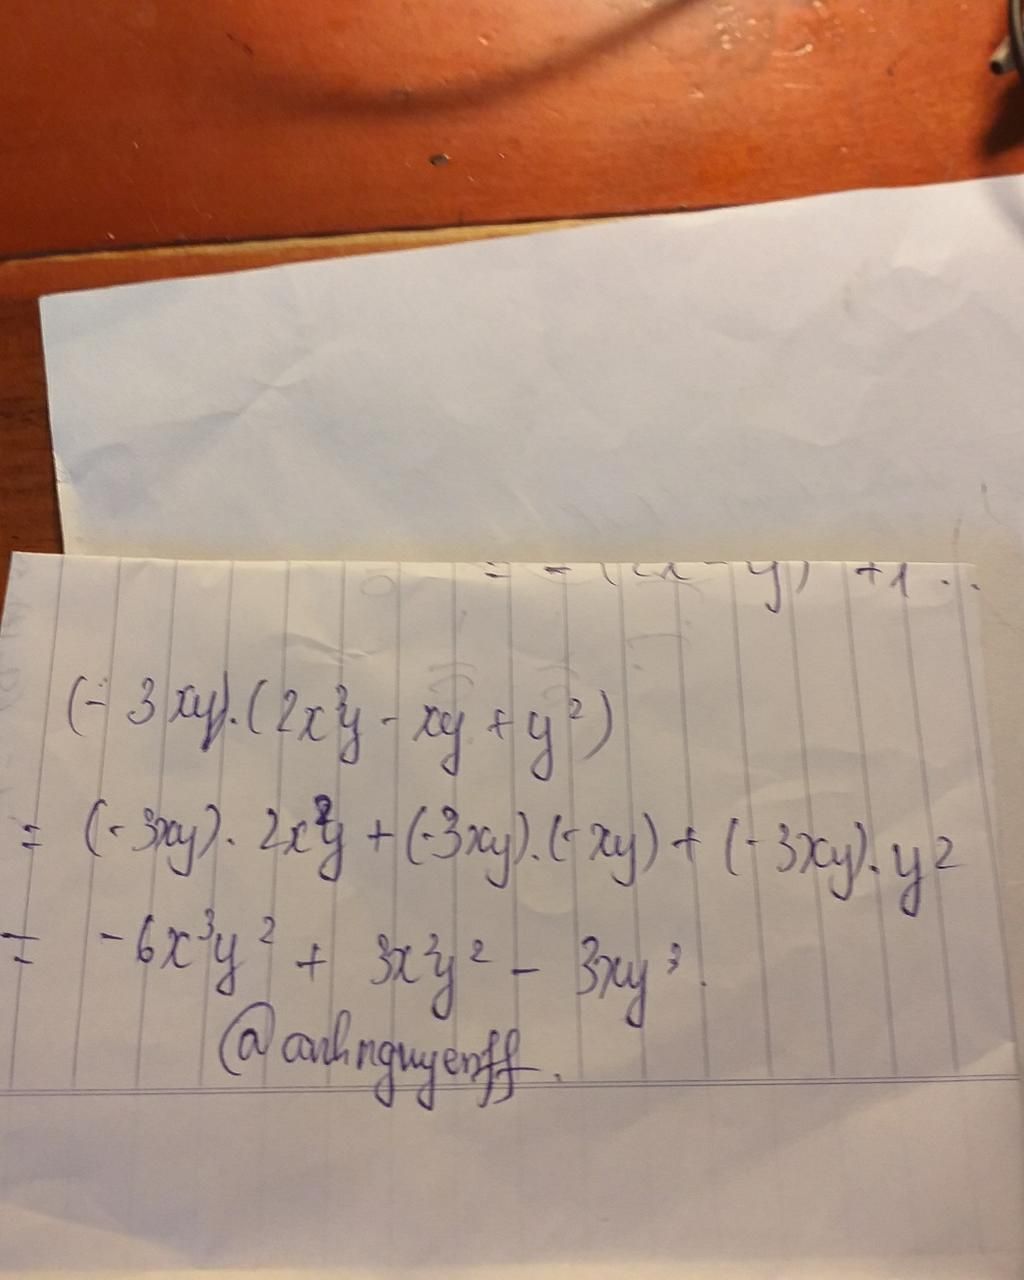 = - (2x - y) + 1 ..
(- 3xy).(2x²y - xy + y²)
= (-3xy). 2x²y + (-3xy).(-xy) + (-3xy).y²
= -6x³y² + 3x²y² - 3xy³.
@anhnguyenff.